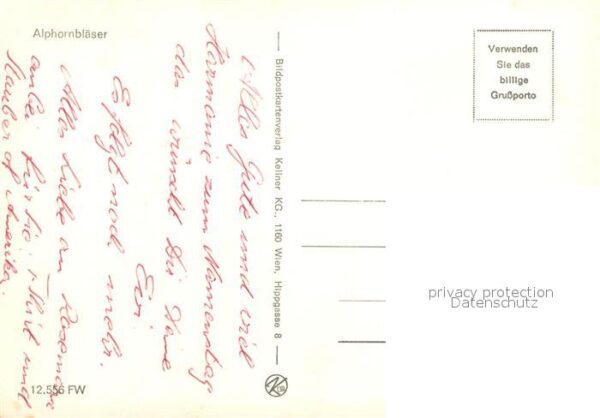 Alphornbläser
Alles Gute und viel
Harmonie zum Namenstag
das wünscht Dir Deine
Evi
Es folgt noch mehr.
Alles Liebe an Rosemarie
anbei für sie 1 und
of Amerika.
Bildpostkartenverlag Kellner KG., 1160 Wien, Hippgasse 8
Verwenden
Sie das
billige
Grußporto
privacy protection
Datenschutz
12.556 FW